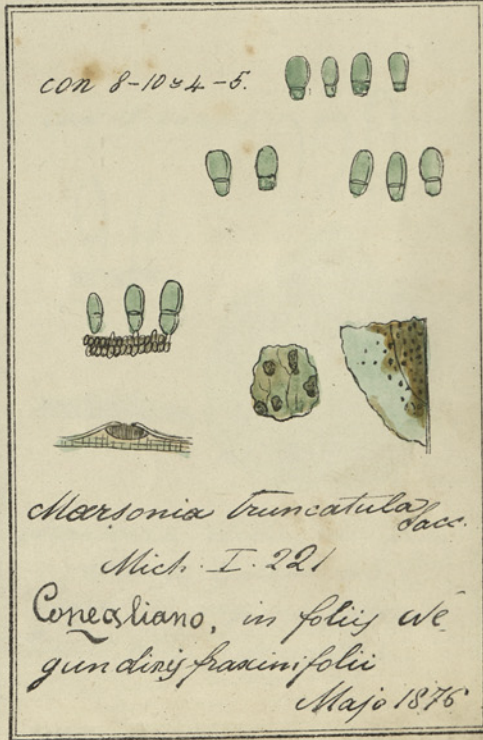 con 8-10 ≈ 4-5.
Marsonia truncatula Sacc.
Mich. I. 221
Conegliano, in foliis Ne-
gundinis fraxinifolii
Majo 1876